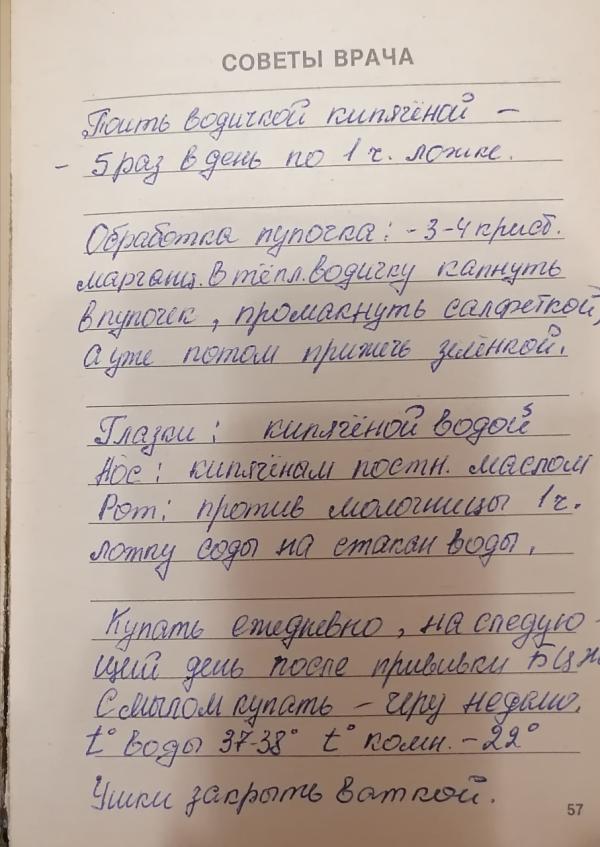 СОВЕТЫ ВРАЧА
Поить водичкой кипячёной –
– 5 раз в день по 1 ч. ложке.
Обработка пупочка: - 3-4 крист.
марганц. в тёпл. водичку капнуть
в пупочек, промакнуть салфеткой,
а уже потом прижечь зелёнкой.
Глазки: кипячёной водой
Нос: кипячёнам постн. маслом
Рот: против молочницы 1 ч.
ложку соды на стакан воды.
Купать ежедневно, на следую-
щий день после прививки БЦЖ
С мылом купать – через неделю.
t° воды 37-38° t° комн. – 22°
Ушки закрыть ваткой.
57